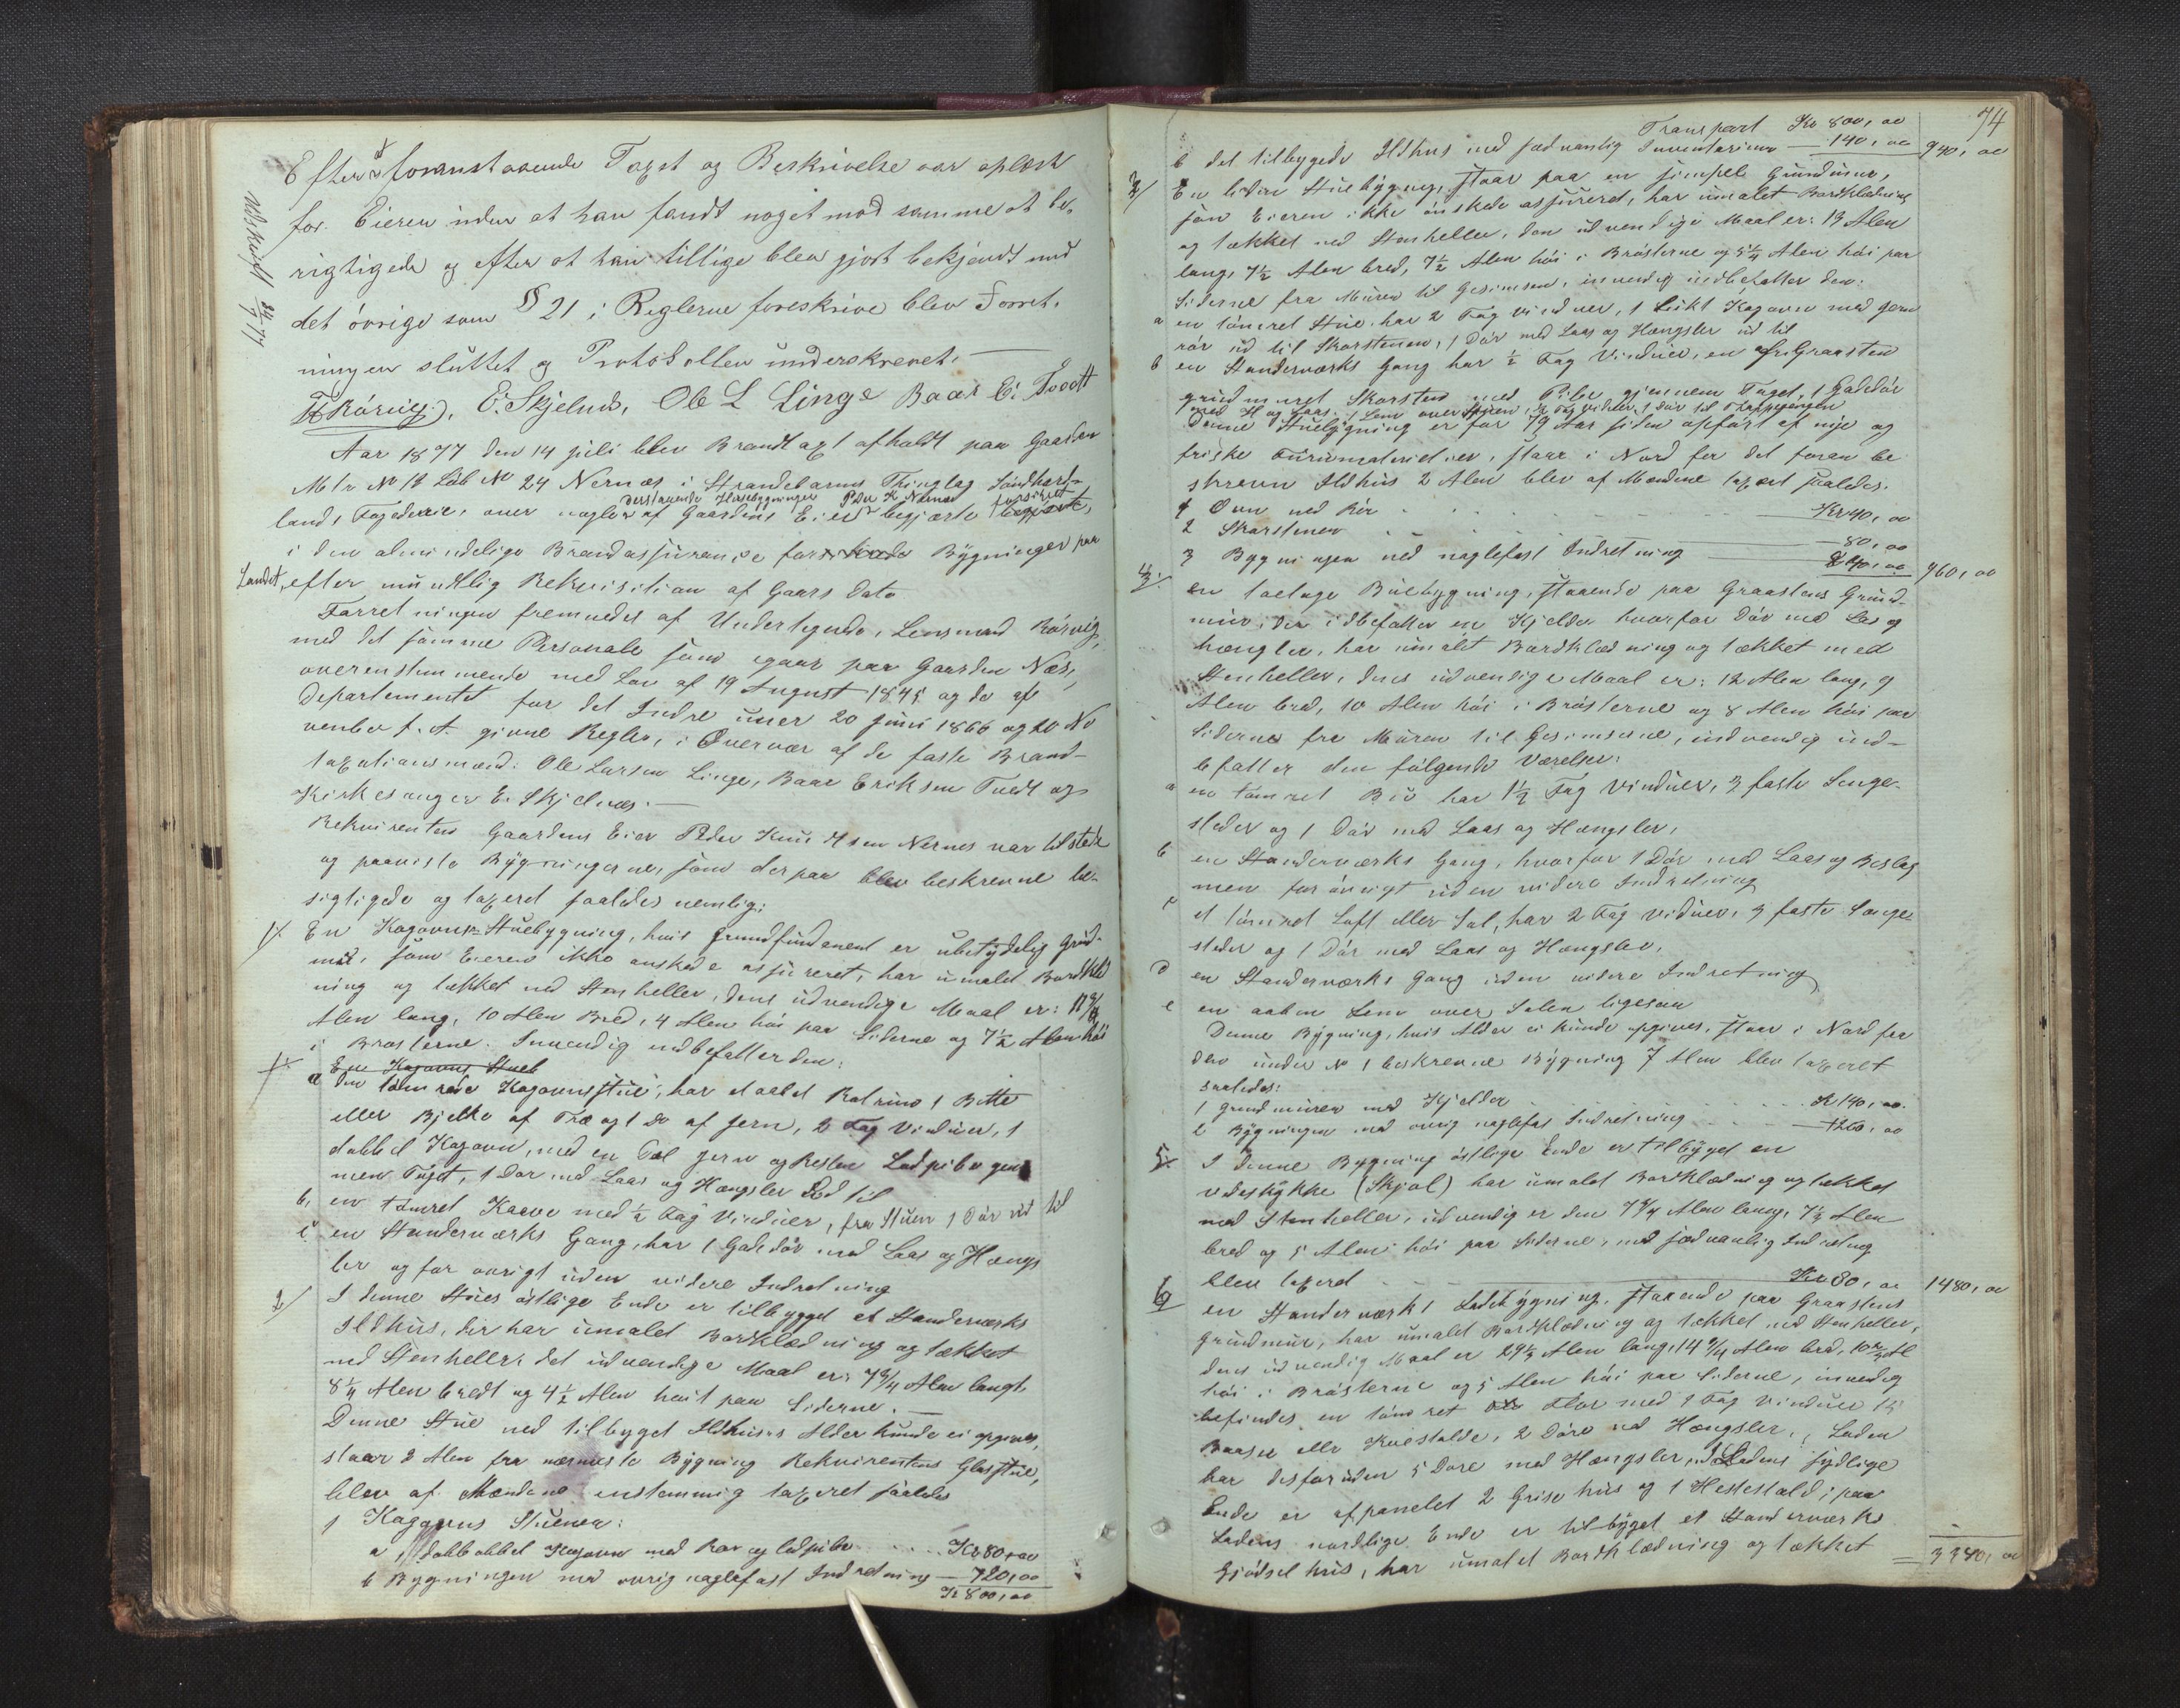 Efter at foranstaaende Taxt og Beskrivelse var oplæst
for Eieren uden at han fandt noget mod samme at be-
rigtigede og efter at han tillige blev gjort bekjendt med
det övrige som § 21 i Reglerne foreskrive blev Forret-
ningen sluttet og Protokollen underskrevet. —
E. Skjelnæs, Ole L Linge Baar E: Tvedt
Aar 1877 den 14 juli blev Brandtaxt afholdt paa Gaarden
Mtr No 18 Löb No 24 Nernæs i Strandebarms Thinglag Söndhord-
derstaaende Husebygninger Peder K Nernæs forsikret
lands Fogederie, over nogle af Gaardens Eier begjærte
i den almindelige Brandassurance for Bygninger paa
Landet, efter mundtlig Rekvisition af Gaars Dato
Forretningen fremmedes af Undertegnede, Lensmand Rörvig,
med det samme Personale som igaar paa Gaarden Næs,
overenstemmende med Lov af 19 August 1845 og de af
Departementet for det Indre under 20 juni 1866 og 20 No
vember s. A. givne Regler, i Overvær af de faste Brand-
taxationsmænd: Ole Larsen Linge, Baar Eriksen Tvedt og
Kirkesanger E. Skjelnæs. —
Rekvirenten Gaardens Eier Peder Knudsen Nernes var tilstede
og paaviste Bygningerne, som derpaa blev beskrevne be-
sigtigede og taxeret saaledes nemlig:
1/ En Kagovns Stuebygning, hvis grundfundament er ubetydelig Grund-
mur, som Eieren ikke önskede assureret, har umalet Bordklæd
ning og tækket med Stenheller, dens udvendige Maal er: 11 3/4
Alen lang, 10 Alen Bred, 4 Alen höi paa Siderne og 7 1/2 Alen höi
i Brösterne. Invendig indbefatter den:
En Kagovns Stueb
a den tömrede Kagovnsstue, har
eller Bjelke af Træ og 1 do af jern, 2 Fag Vinduer, 1
dobbel Kagovn, med en Del jern og Resten Lodpibe gjen
nem Taget, 1 Dör med Laas og Hængsler Ud til
b, en tömret Kaave med 1/2 Fag Vinduer, fra Stuen 1 Dör ud til
c en Standerværks Gang, har 1 Gadedör med Laas og Hængs
ler og for övrigt uden videre Indretning
2/ I denne Stues östlige Ende er tilbygget et Standerværks
Ildhus, der har umalet Bordklædning og tækket
med Stenheller, det udvendige Maal er: 7 3/4 Alen langt,
8 1/4 Alen bredt og 4 1/2 Alen höit paa Siderne. —
Denne Stue med tilbyget Ildhuses Alder kunde ei opgives,
staar 3 Alen fra nærmeste Bygning Rekvirentens Glasstue,
blev af Mændene enstemmig taxeret saaledes
1 Kagovns Stuen:
a, 1 dobbel Kagovn med Rör og lodpibe ..... Kr 80,00
b Bygningen med övrig naglefast Indretning — 720,00
Kr 800,00
74
Transport Kr 800,00
b det tilbygede Ildhus med sædvanlig Inventarium — 140,00 940,00
3/ En liden Stuebygning, staar paa en simpel Grundmur,
som Eieren ikke önskede assureret, har umalet Bordklædning
og tækket med Stenheller, den udvendige Maal er: 13 Alen
lang, 7 1/2 Alen bred, 7 1/2 Alen höi i Brösterne og 5 1/4 Alen höi paa
Siderne fra Muren til Gesimsen, invendig indbefatter den:
a en tömret Stue har 2 Fag vinduer, 1 Kagovn med jern
rör ud til Skorstenen, 1 Dör med Laas og Hængsler ud til
b en Standerværks Gang har 1/2 Fag Vinduer, en af Graasten
grundmuret Skorsten med Pibe gjennem Taget, 1 Gadedör
med H og Laas. 1 Lem over Stuen, 1/2 Fag vinduer, 1 Dör til Trappegangen
Denne Stuebygning er for 19 Aar siden opfört af nye og
friske Furumaterialier, staar i Nord for det foran be
skreven Ildhus 2 Alen blev af Mændene taxert saaledes.
1 Ovn med Rör . . . . . Kr 40,00
2 Skorstenen . . . . — 80,00
3 Bygningen med naglefast Indretning 840,00 960,00
4/ en toetage Buebygning, staaende paa Graastens Grund-
mur, der idbefatter en Kjelder hvorfor Dör med Las og
hængler, har umalet Bordklædning og tækket med
Stenheller, dens udvendige Maal er: 12 Alen lang, 9
Alen bred, 10 Alen höi i Brösterne og 8 Alen höi paa
Siderne fra Muren til Gesimserne, indvendig ind-
befatter den fölgende Værelser:
a en tömret Bu har 1 1/2 Fag Vinduer, 3 faste Senge-
steder og 1 Dör med Laas og Hængsler,
b en Standerværks Gang, hvorfor 1 Dör med Laas og Beslag
men for övrigt uden videre Indretning
c et tömret Loft eller Sal, har 2 Fag viduer, 3 faste Senge-
steder og 1 Dör med Laas og Hængsler,
d en Standerværks Gang uden videre Indretning
e en aaben Lem over Salen ligesaa
Denne Bygning, hvis Alder ei kunde opgives, staar i Nord fra
den under No 1 beskrevne Bygning 7 Alen blev taxeret
saaledes:
1 grundmuren med Kjelder . . . . Kr 140,00
2 Bygningen med övrig naglefast Indretning . . . . — 1260,00
5/ I denne Bygning östlige Ende er tilbyget en
vedeskykke (Skjol) har umalet Bordklædning og tækket
med Stenheller, udvendig er den 7 3/4 Alen lang, 7 1/2 Alen
bred og 5 Alen höi paa Siderne, med sædvanlig Indretning
blev taxeret . . . Kr 80,00 1480,00
6/ en Standerværks Ladebygning, staaende paa Graastens
Grundmur, har umalet Bordklædning og tækket med Stenheller,
dens udvendig Maal er 29 1/2 Alen lang, 14 3/4 Alen bred, 10 Al
höi i Brösterne og 5 Alen höi paa Siderne, invendig
befindes en tömret Flor med 1 Fag Vinduer 15
Baaser eller Kuestalde, 2 Döre med Hængsler, Laden
har desforuden 5 Döre med Hængsler, i Ladens sydlige
Ende er afpanelet 2 Grise hus og 1 Hestestald; paa
Ladens nordlige Ende er tilbyget et Standerværks
Gjödsel hus, har umalet Bordklædning og tækket = 3380,00